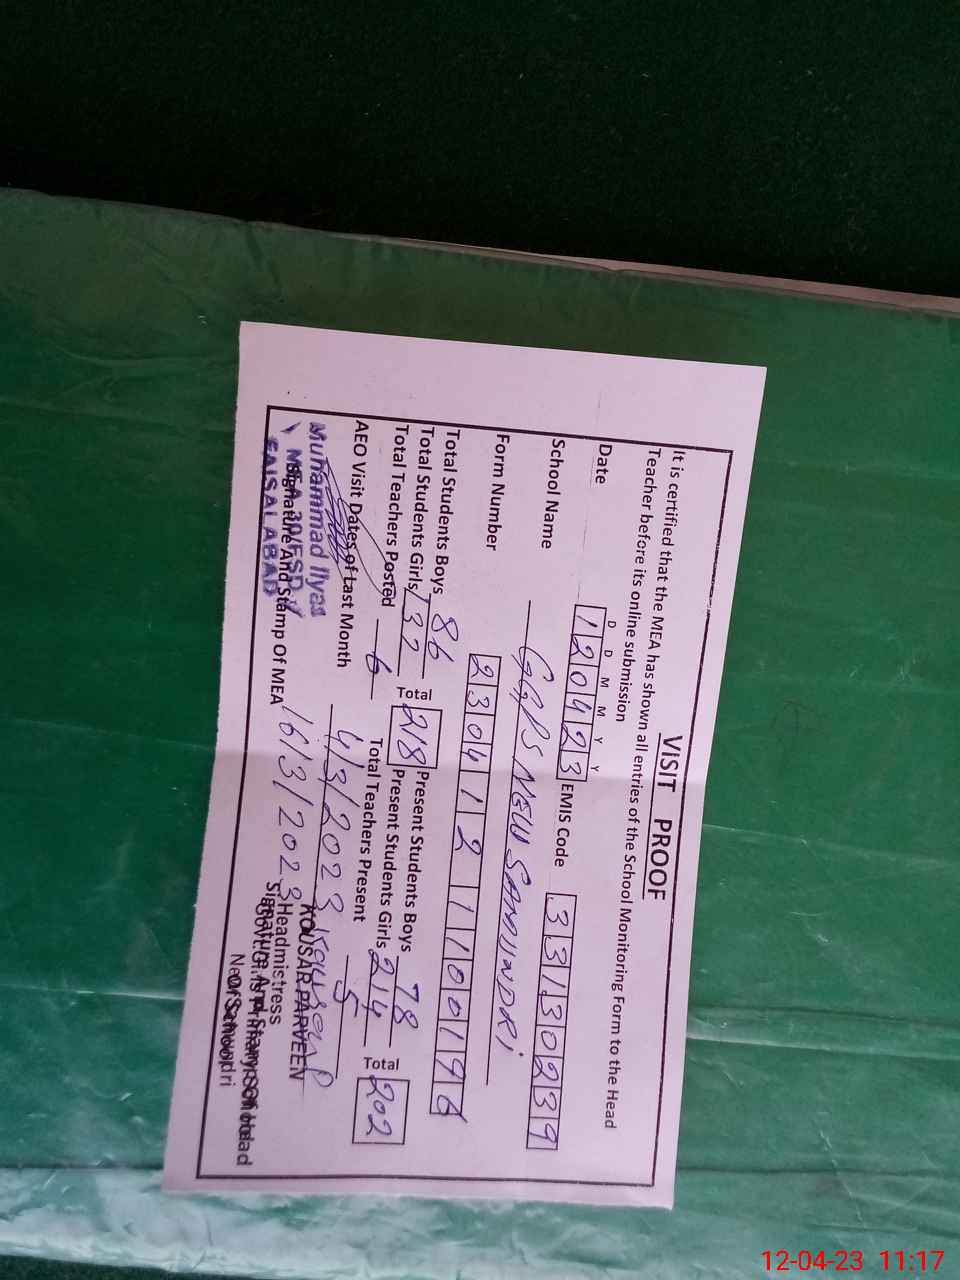 VISIT PROOF
It is certified that the MEA has shown all entries of the School Monitoring Form to the Head
Teacher before its online submission
D D M M Y Y
Date 120423 EMIS Code 33130239
School Name GGPS NEW SAMUNDRI
Form Number 2304121100196
Total Students Boys 86 Present Students Boys 78
Total Students Girls 132 Total 218 Present Students Girls 214 Total 202
Total Teachers Posted 6 Total Teachers Present 5
AEO Visit Dates of Last Month 4/3/2023
16/3/2023
Muhammad Ilyas
MEA 30/FSD
FAISALABAD
Signature And Stamp Of MEA
KOUSAR PARVEEN
Headmistress
Signature And Stamp Of Head
Of School
Govt. Girls Primary School
New Samundri
12-04-23 11:17